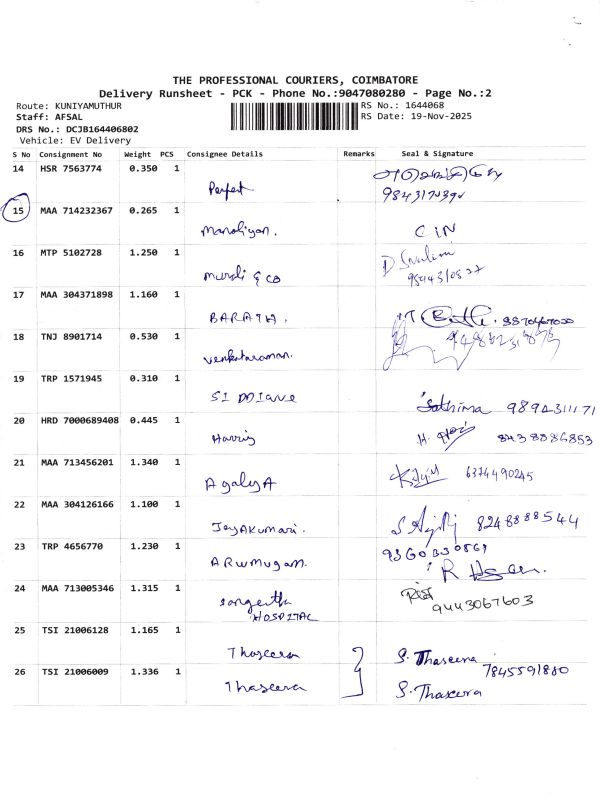 THE PROFESSIONAL COURIERS, COIMBATORE
Delivery Runsheet - PCK - Phone No.:9047080280 - Page No.:2
Route: KUNIYAMUTHUR
Staff: AFSAL
DRS No.: DCJB164406802
Vehicle: EV Delivery
RS No.: 1644068
RS Date: 19-Nov-2025
S No Consignment No Weight PCS Consignee Details Remarks Seal & Signature
14 HSR 7563774 0.350 1
Perfect
15 MAA 714232367 0.265 1
CIN
16 MTP 5102728 1.250 1
Murali & co
17 MAA 304371898 1.160 1
BARATH.
18 TNJ 8901714 0.530 1
Venkataraman.
19 TRP 1571945 0.310 1
Sathima 9894311171
20 HRD 7000689408 0.445 1
Harris H. 8438886853
21 MAA 713456201 1.340 1
AgalyA 6374490245
22 MAA 304126166 1.100 1
JeyAkumari. 8248888544
23 TRP 4656770 1.230 1
ARumugam.
24 MAA 713005346 1.315 1
Sangeetha HOSPITAL 9443067603
25 TSI 21006128 1.165 1
Thaseera S. Thaseera
7845591880
26 TSI 21006009 1.336 1
Thaseera S. Thaseera